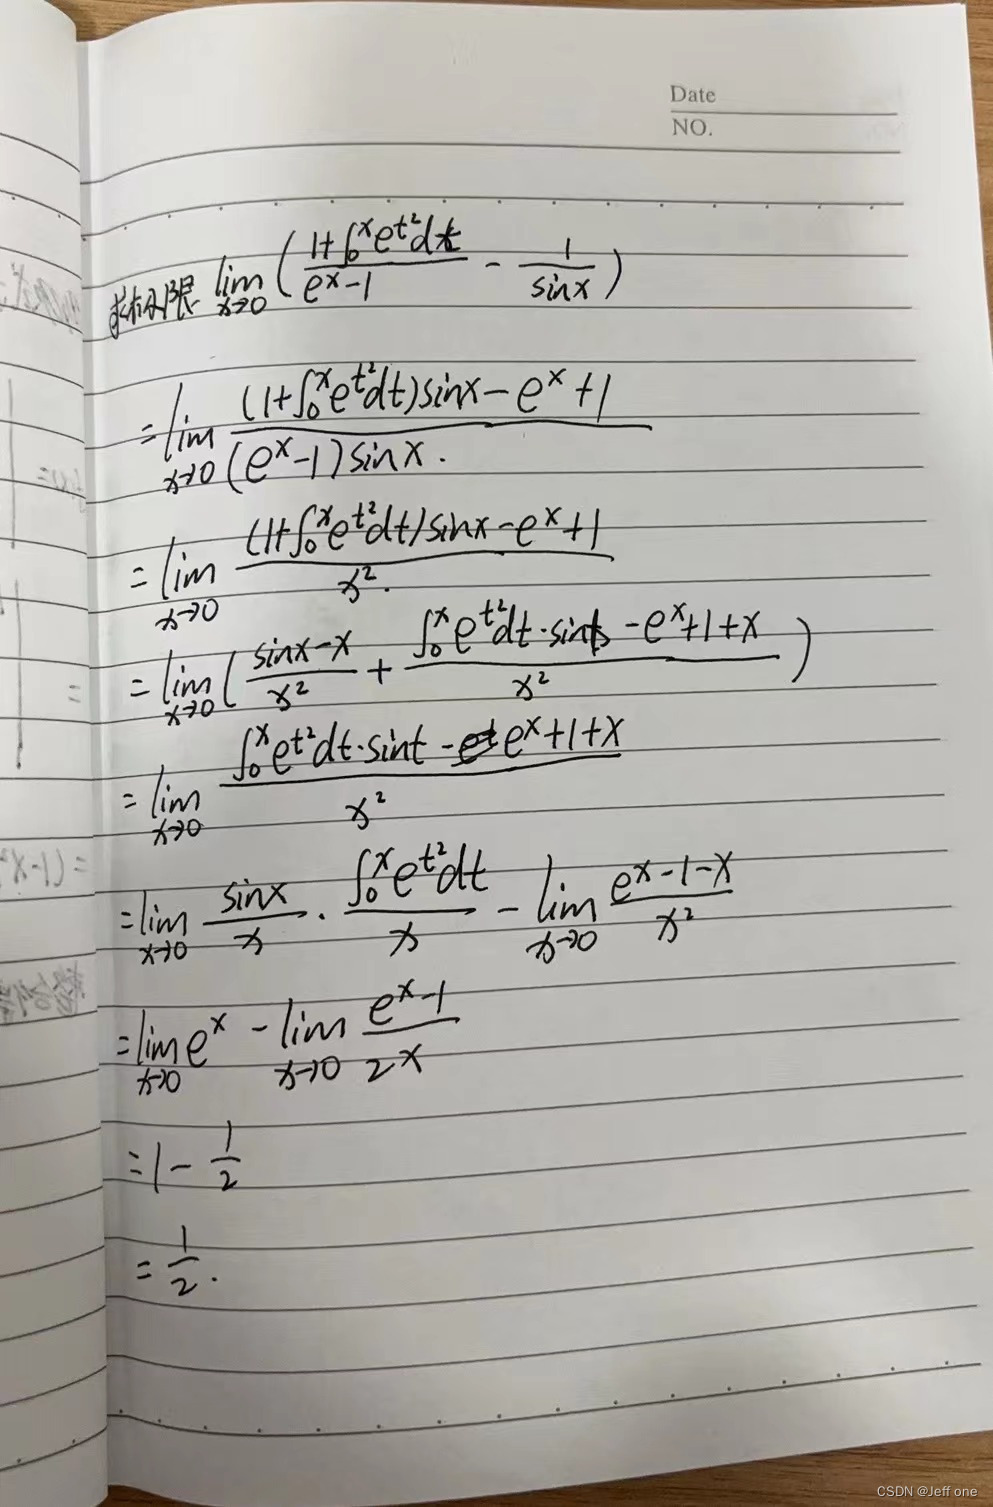 Date
NO.
求极限 lim x→0 ( (1+∫₀ˣe^(t²)dt)/(eˣ-1) - 1/sinx )
= lim x→0 ((1+∫₀ˣe^(t²)dt)sinx-eˣ+1)/((eˣ-1)sinx).
= lim x→0 ((1+∫₀ˣe^(t²)dt)sinx-eˣ+1)/x².
= lim x→0 ( (sinx-x)/x² + (∫₀ˣe^(t²)dt·sin -eˣ+1+x)/x² )
= lim x→0 (∫₀ˣe^(t²)dt·sint - eˣ+1+x)/x²
= lim x→0 sinx/x · ∫₀ˣe^(t²)dt/x - lim x→0 (eˣ-1-x)/x²
= lim x→0 eˣ - lim x→0 (eˣ-1)/2x
= 1 - 1/2
= 1/2.
CSDN @Jeff one